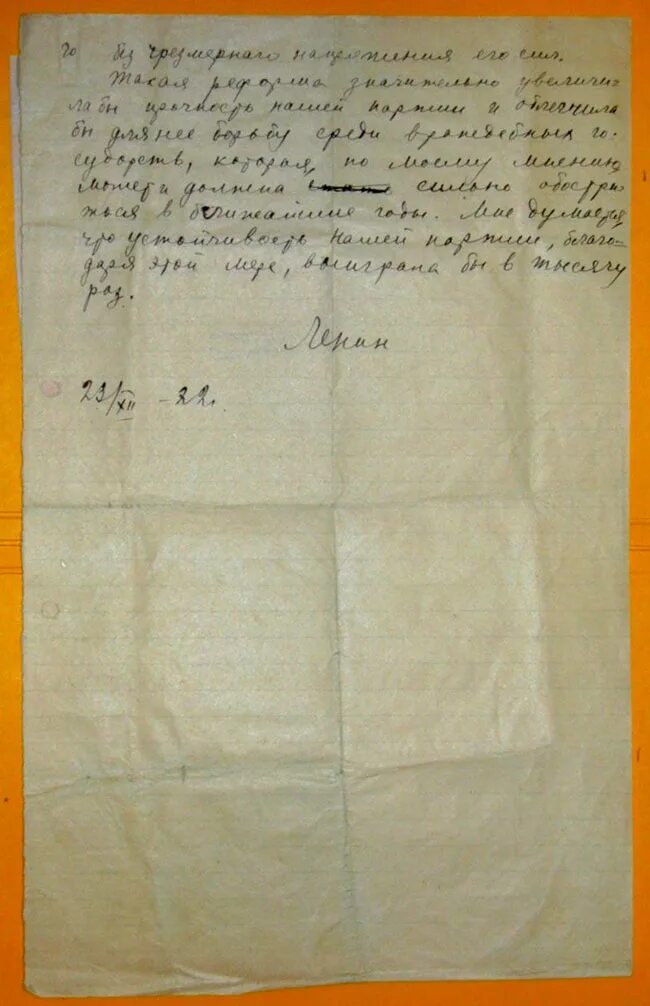 го без чрезмернаго напряжения его сил.
Такая реформа значительно увеличи-
ла бы прочность нашей партии и облегчила
бы для нее борьбу среди враждебных го-
сударств, которая, по моему мнению,
может и должна сильно обостри-
ться в ближайшие годы. Мне думается,
что устойчивость нашей партии, благо-
даря этой мере, выиграла бы в тысячу
раз.
Ленин
23/XII - 22г.